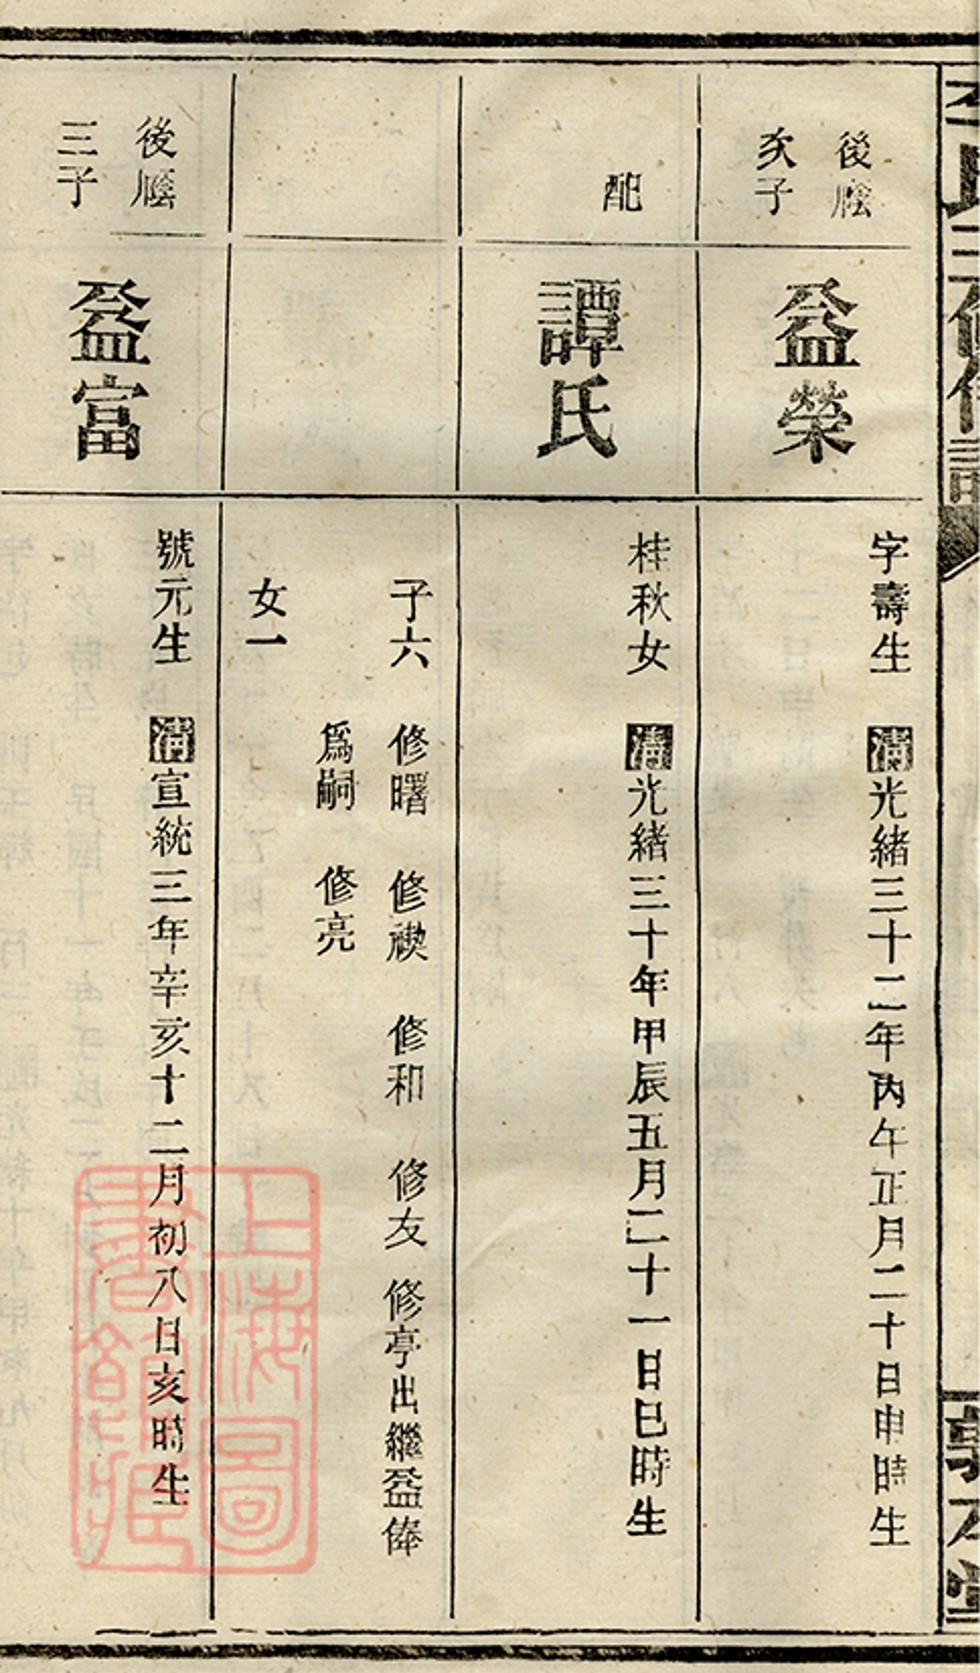 後廕
次子
盈榮
字壽生　清光緒三十二年丙午正月二十日申時生
配
譚氏
桂秋女　清光緒三十年甲辰五月二十一日巳時生
子六　修曙　修禊　修和　修友　修亭出繼盈俸
爲嗣　修亮
女一
後廕
三子
盈富
號元生　清宣統三年辛亥十二月初八日亥時生
上海圖
書館藏